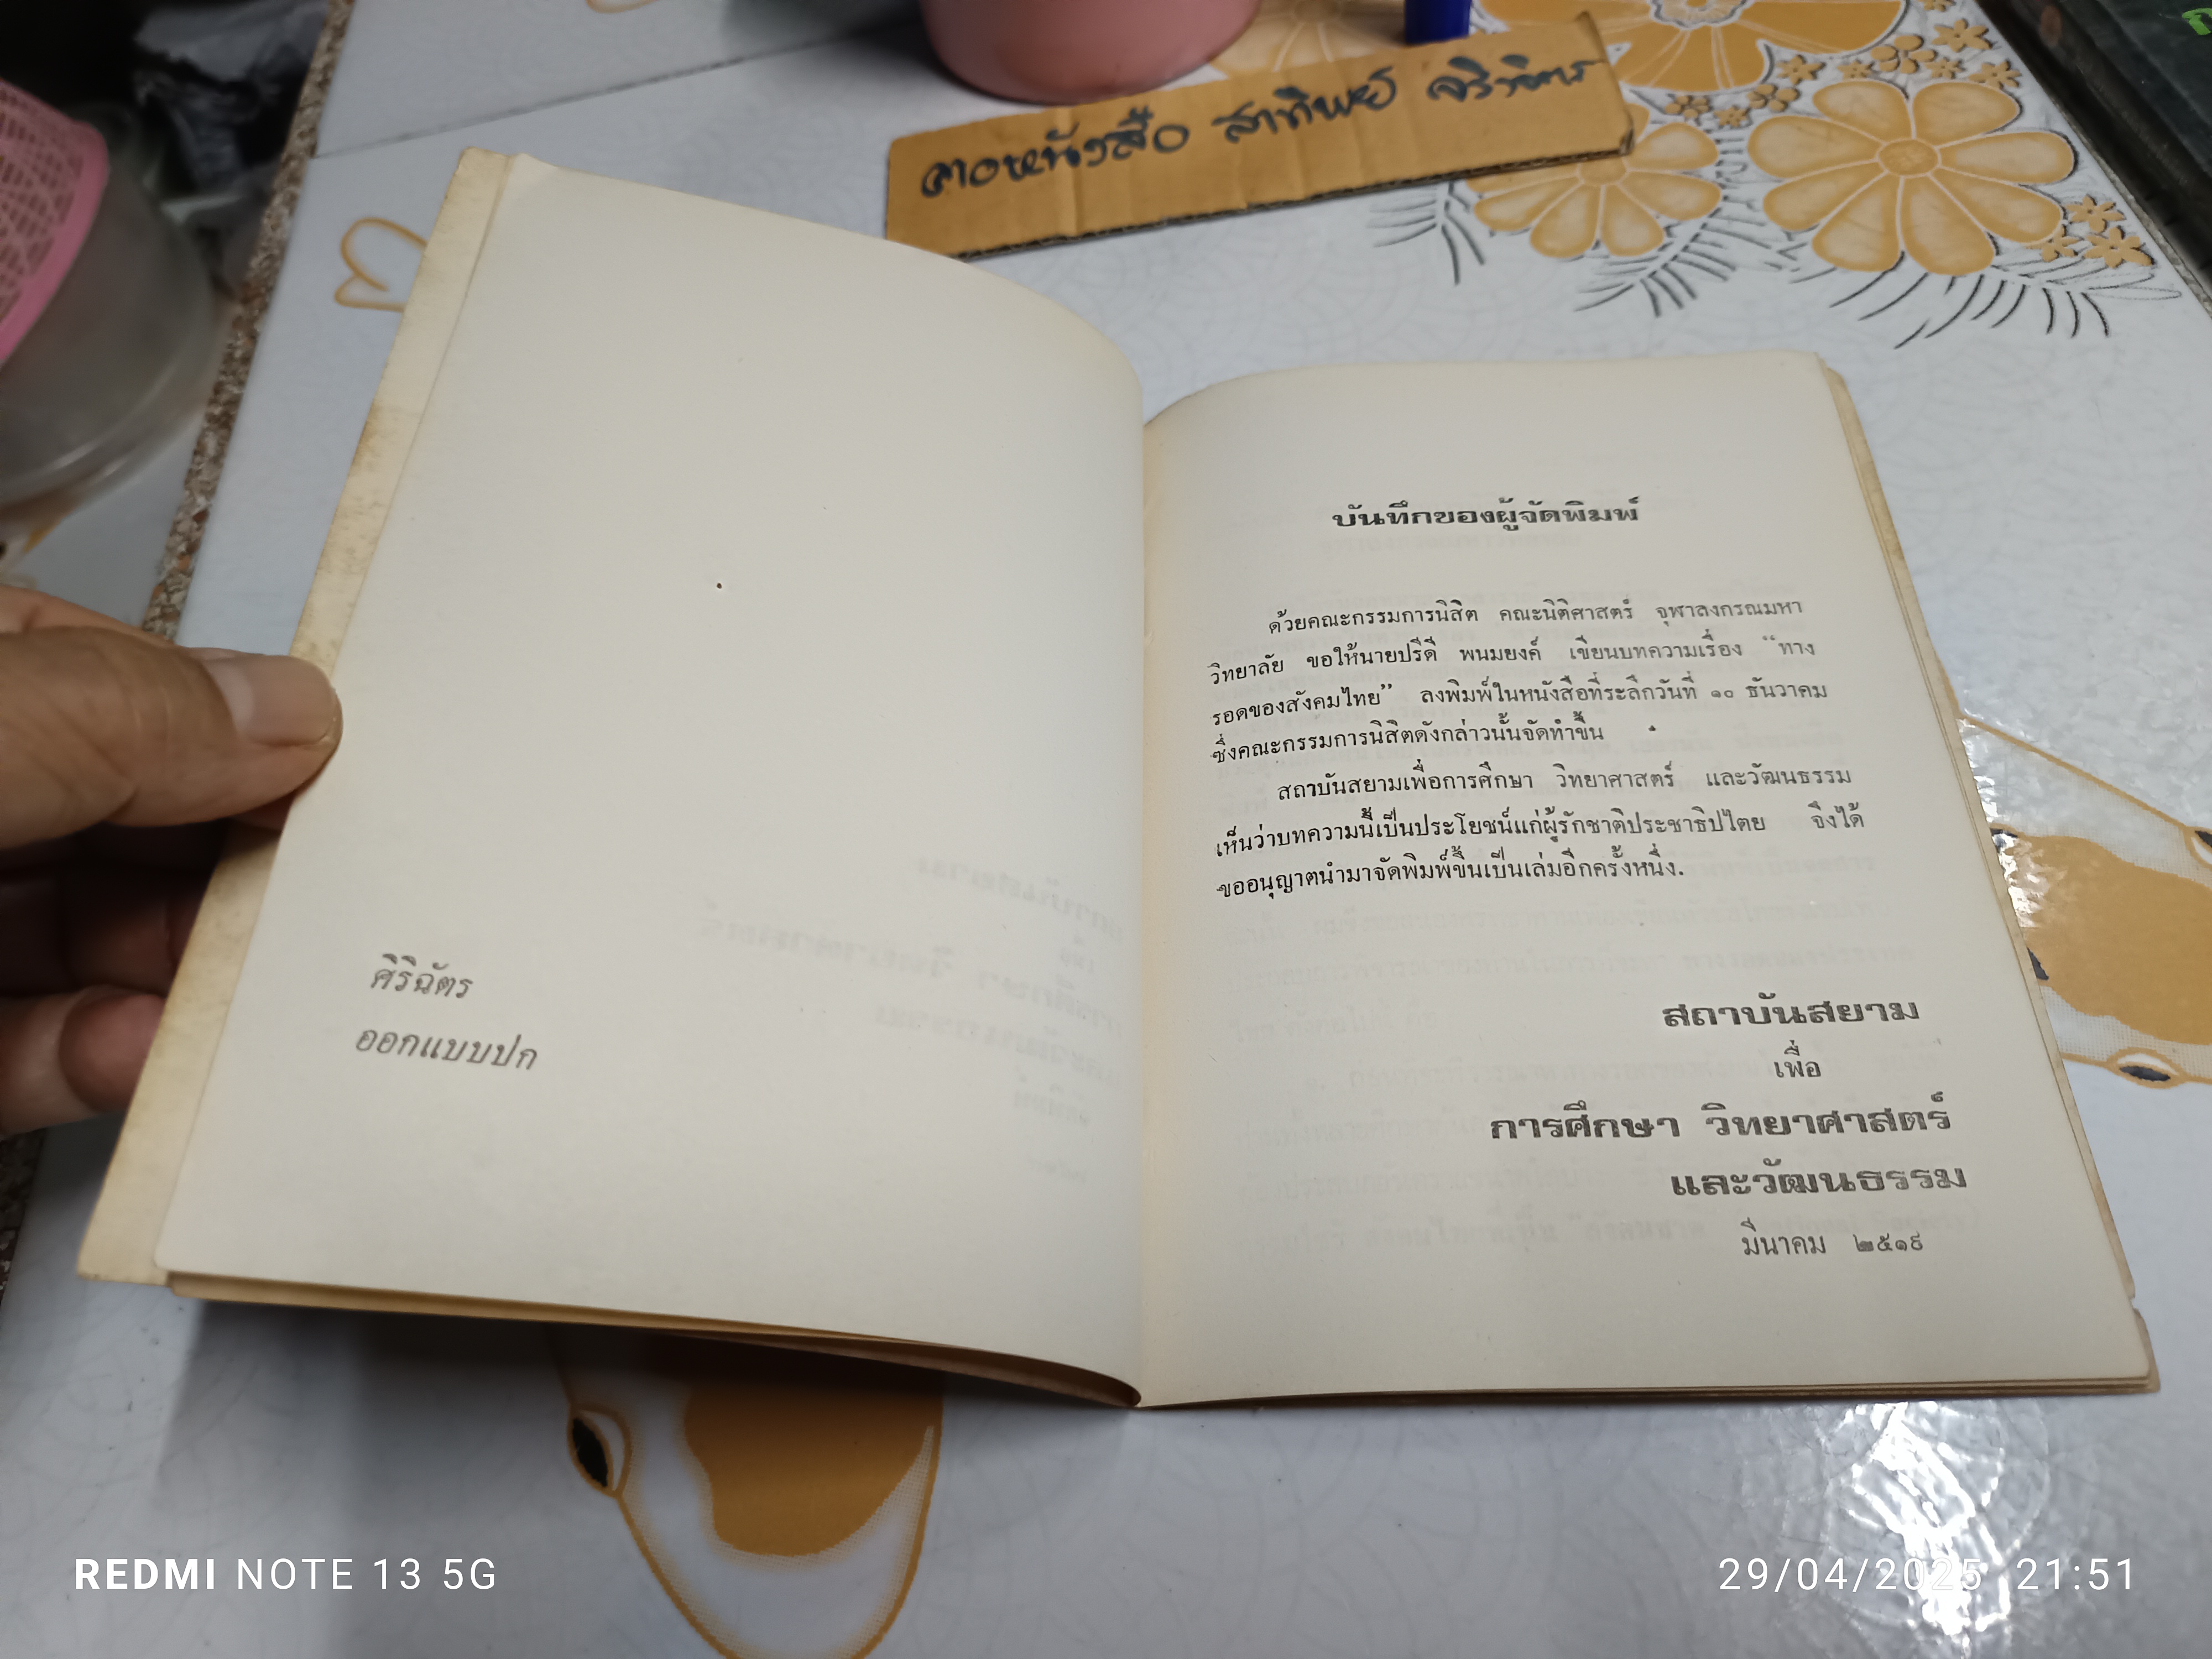 ดาวหนังสือ สาทิพย์ จริงจิตร
ศิริฉัตร
ออกแบบปก
บันทึกของผู้จัดพิมพ์
ด้วยคณะกรรมการนิสิต คณะนิติศาสตร์ จุฬาลงกรณมหา
วิทยาลัย ขอให้นายปรีดี พนมยงค์ เขียนบทความเรื่อง “ทาง
รอดของสังคมไทย” ลงพิมพ์ในหนังสือที่ระลึกวันที่ ๑๐ ธันวาคม
ซึ่งคณะกรรมการนิสิตดังกล่าวนั้นจัดทำขึ้น
สถาบันสยามเพื่อการศึกษา วิทยาศาสตร์ และวัฒนธรรม
เห็นว่าบทความนี้เป็นประโยชน์แก่ผู้รักชาติประชาธิปไตย จึงได้
ขออนุญาตนำมาจัดพิมพ์ขึ้นเป็นเล่มอีกครั้งหนึ่ง.
สถาบันสยาม
เพื่อ
การศึกษา วิทยาศาสตร์
และวัฒนธรรม
มีนาคม ๒๕๑๙
REDMI NOTE 13 5G
29/04/2025 21:51